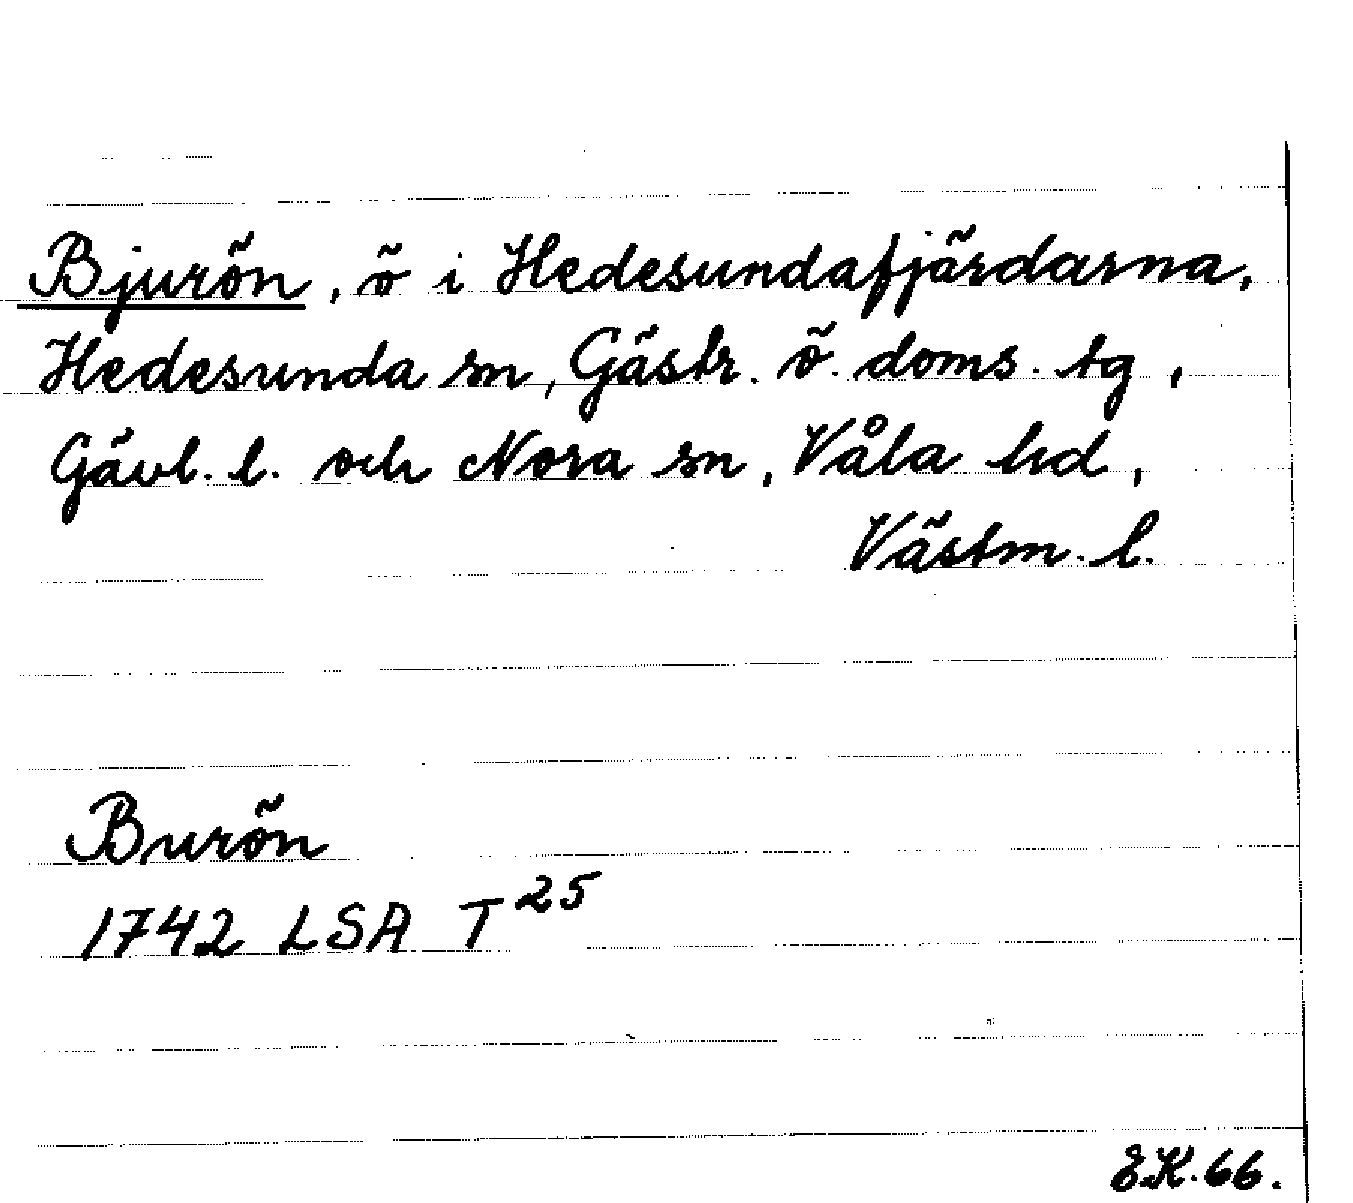 Bjurön, ö i Hedesundafjärdarna,
Hedesunda sn, Gästr. ö. doms. tg,
Gävl. l. och Nora sn, Våla hd,
Västm. l.
Burön
1742 LSA T25
EK.66.